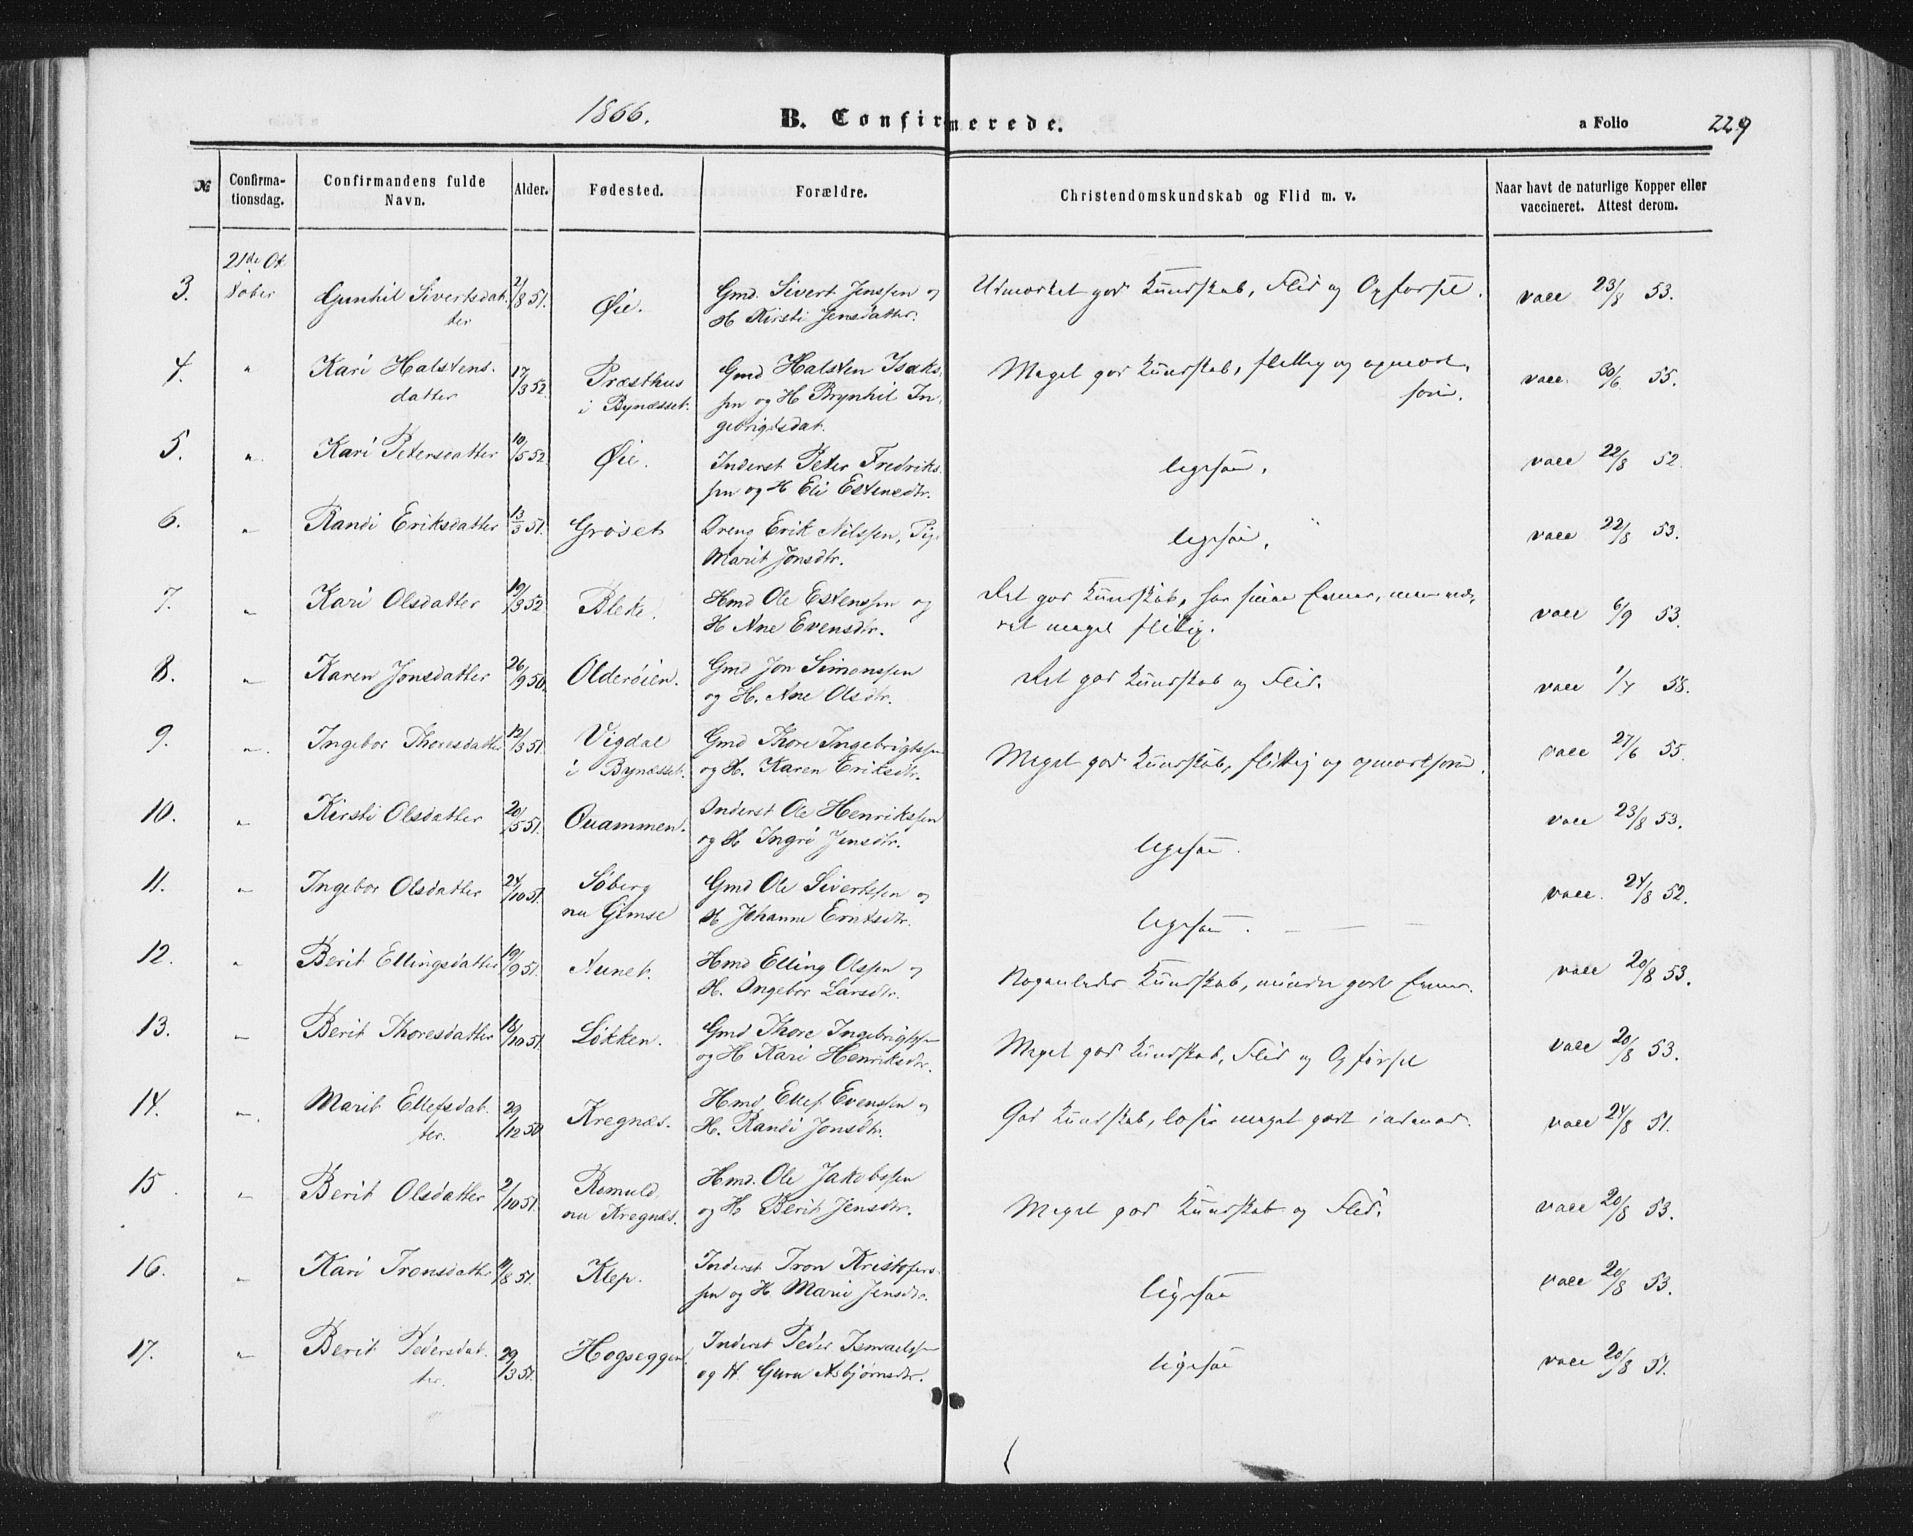 1866. B. Confirmerede. a Folio 229
№ Confirma-tionsdag. Confirmandens fulde Navn. Alder. Fødested. Forældre. Christendomskundskab og Flid m. v. Naar havt de naturlige Kopper eller vaccineret. Attest derom.
21de Ok
3. tober Gunhil Sivertsdat- 2/8 51. Øie. Gmd. Sivert Jenssen og Udmærket god Kundskab, Flid og Opførsel. vacc 23/8 53.
ter H Kirsti Jensdatter.
4. " Kari Halstens- 17/3 52 Præsthus Gmd Halsten Isaks- Meget god Kundskab, flittig og opmærk- vacc. 30/6 55.
datter i Bynæsset. sen og H Brynhil In- som.
gebrigtsdat.
5. " Kari Petersdatter 10/5 52 Øie. Inderst Peter Fredriks- ligesaa. vacc 22/8 52.
sen og H Eli Estensdtr.
6. " Randi Eriksdatter 13/3 51. Grøset Dreng Erik Nilssen, Pig. ligesaa. vacc 22/8 53.
Marit Jonsdtr.
7. " Kari Olsdatter 19/3 52 Bleke. Hmd Ole Estenssen og Ret god Kundskab, har smaa Evner, men væ- vacc 6/9 53.
H Ane Evensdtr. ret meget flittig.
8. " Karen Jonsdatter 26/9 50. Olderøien. Gmd Jon Simonssen Ret god Kundskab og Flid. vacc 1/7 58.
og H. Ane Olsdtr.
9. " Ingebor Thoresdatter 12/3 51. Vigdal Gmd Thore Ingebrigtssen Meget god Kundskab, flittig og opmærksom. vacc 27/6 55.
i Bynæsset. og H. Karen Eriksdtr.
10. " Kirsti Olsdatter 20/5 51. Quammen. Inderst Ole Henrikssen ligesaa. vacc 23/8 53.
og H Ingri Jensdtr.
11. " Ingebor Olsdatter 24/10 51. Søberg Gmd Ole Sivertssen og ligesaa. vacc. 24/8 52.
nu Gimse H Johanna Eriksdtr.
12. " Berit Ellingsdatter 19/9 51. Aunet. Hmd Elling Olssen og Nogenledes Kundskab, mindre gode Evner. vacc 20/8 53.
H. Ingebor Larsdtr.
13. " Berit Thoresdatter 18/10 51. Løkken. Gmd Thore Ingebrigtssen Meget god Kundskab, Flid og Opførsel vacc 20/8 53.
og H Kari Henriksdtr.
14. " Marit Ellefsdat- 29/12 50 Kregnæs. Hmd Ellef Evenssen og God Kundskab, læser meget godt i udenad. vacc 24/8 51.
ter. H. Randi Jonsdtr.
15. " Berit Olsdatter 2/10 51. Romuld Hmd. Ole Jakobssen Meget god Kundskab og Flid. vacc 20/8 53.
nu Kregnæs. og H Berit Jensdtr.
16. " Kari Tronsdatter 11/8 51. Klep. Inderst Tron Kristofers- ligesaa vacc 20/8 53.
sen og H. Mari Jensdtr.
17. " Berit Pedersdat- 29/3 51. Hogseggen. Inderst Peder Ismaelssen ligesaa vacc 20/8 51.
ter. og H. Guru Asbjørnsdtr.